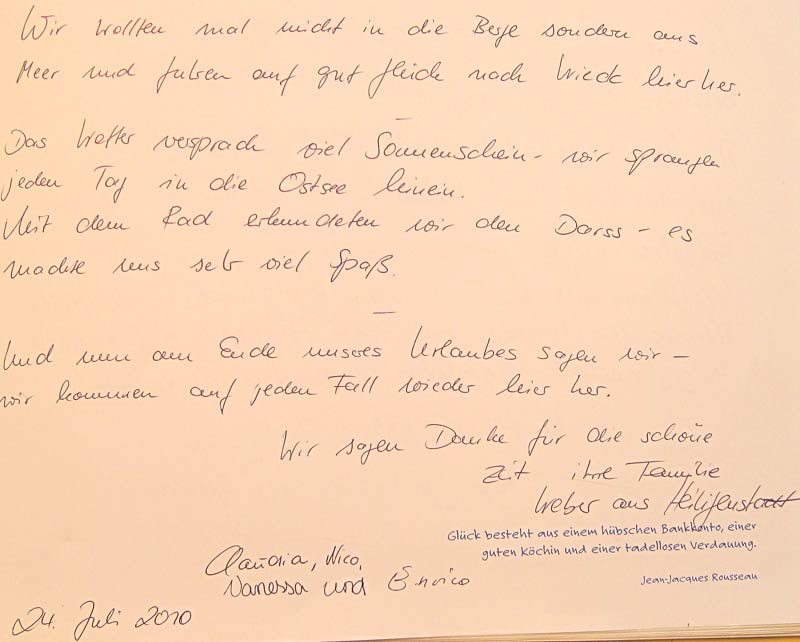 Wir wollten mal nicht in die Berge sondern ans
Meer und fuhren auf gut Glück nach Wieck hierher.
Das Wetter versprach viel Sonnenschein - wir sprangen
jeden Tag in die Ostsee hinein.
Mit dem Rad erkundeten wir den Darss - es
machte uns sehr viel Spaß.
Und nun am Ende unseres Urlaubes sagen wir -
wir kommen auf jeden Fall wieder hier her.
Wir sagen Danke für die schöne
Zeit ihre Familie
Weber aus Heiligenstadt
Glück besteht aus einem hübschen Bankkonto, einer
guten Köchin und einer tadellosen Verdauung.
Jean-Jacques Rousseau
Claudia, Nico,
Vanessa und Enrico
24. Juli 2010